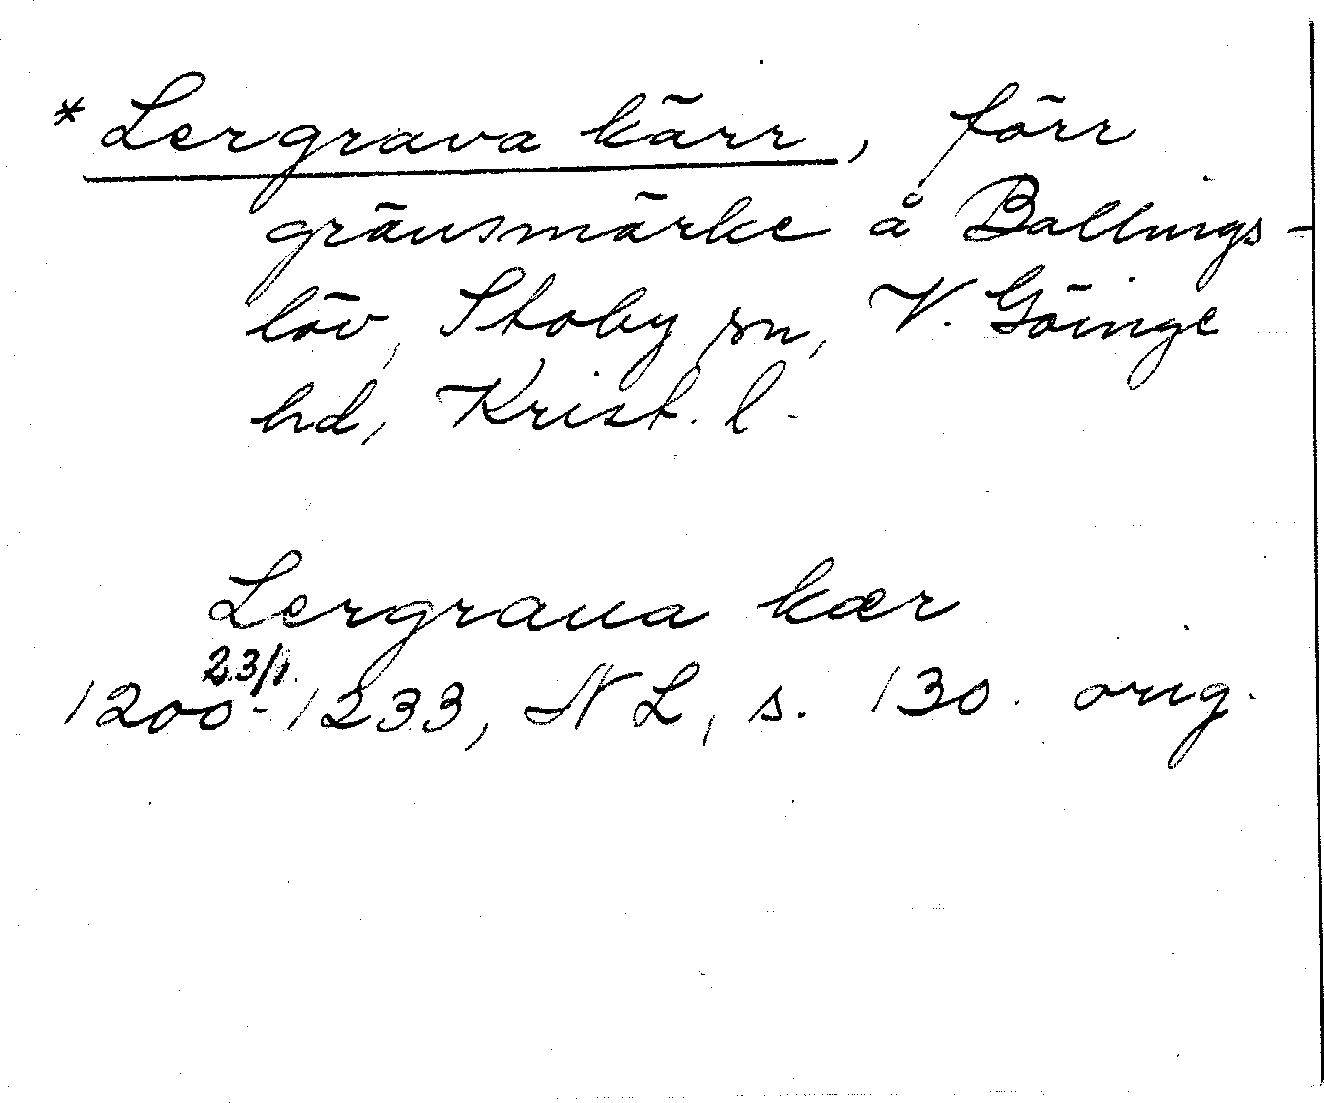 * Lergrava kärr, förr
gränsmärke å Ballings-
löv, Stoby sn, V. Göinge
hd, Krist. l.
Lergraua kær
23/1.
1200-1233, NL, s. 130. orig.